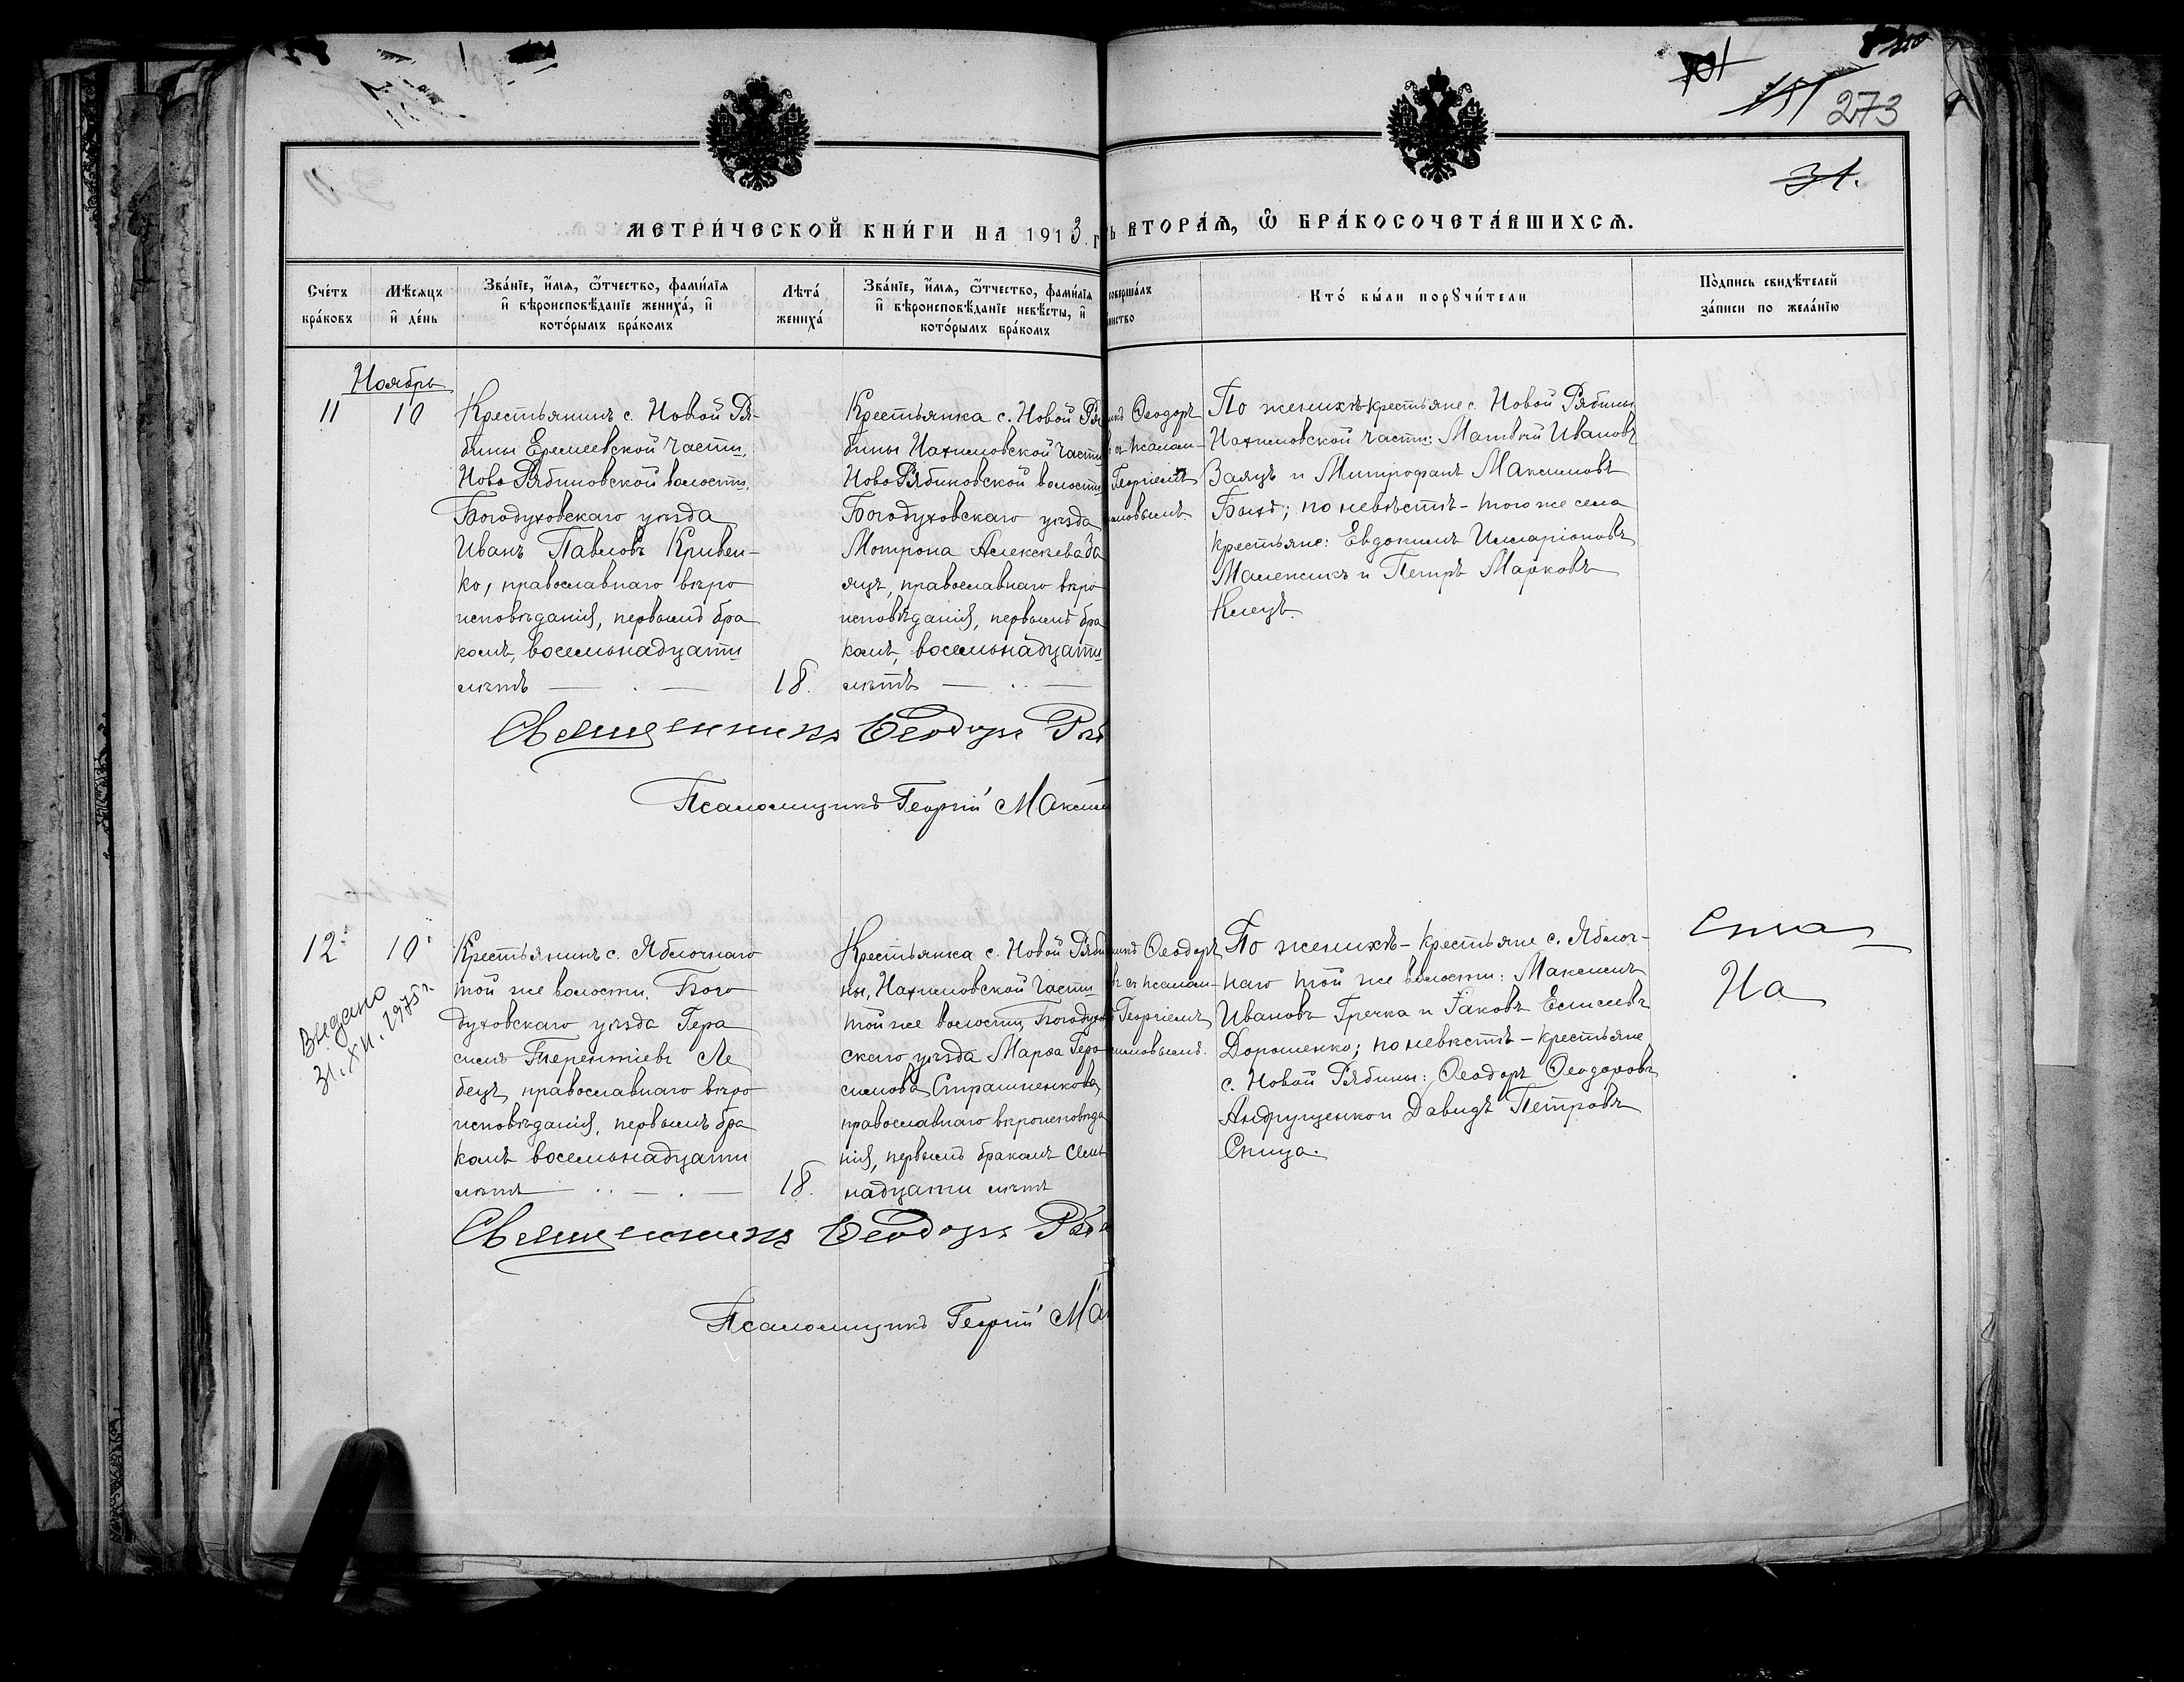 273
31.
МЕТРИ́ЧЕСКОЙ КНИ́ГИ НА 1913 г
ВТОРА́Ѧ, Ѿ БРА́КОСОЧЕТА́ВШИХСѦ.
Сче́тъ бра́ковъ
Мѣ́сѧцъ и҆ де́нь
Зва́нїе, и҆́мѧ, ѻ҆́тчество, фами́лїѧ и҆ вѣроисповѣ́данїе жениха́, и҆ кото́рымъ бра́комъ
Лѣта́ жениха́
Зва́нїе, и҆́мѧ, ѻ҆́тчество, фами́лїѧ и҆ вѣроисповѣ́данїе невѣ́сты, и҆ кото́рымъ бра́комъ
совершáлъ
Кто́ бы́ли порꙋчи́тели
По́дпись свидѣ́телей за́писи по жела́нїю
Ноябрь
11
10
Крестьянинъ с. Новой Ря-
бины Еремеевской части,
Ново Рябиновской волости,
Богодуховскаго уѣзда
Иванъ Павловъ Кривен-
ко, православнаго вѣро
исповѣданія, первымъ бра
комъ, восемьнадцати
лѣтъ
18.
Крестьянка с. Новой Ря
бины Нахимовской части
Ново Рябиновской волости
Богодуховскаго уѣзда
Мотрона Алексѣева За
яцъ, православнаго вѣро
исповѣданія, первымъ бра
комъ, восемьнадцати
лѣтъ
Ѳеодоръ
съ псалом-
Георгіемъ
имовымъ
По женихѣ-крестьяне с. Новой Рябины
Нахимовской части: Матвѣй Ивановъ
Заяцъ и Митрофанъ Максимовъ
Быкъ; по невѣстѣ - того же села
крестьяне: Евдокимъ Илларіоновъ
Маленикъ и Петръ Марковъ
Клецъ.
Священникъ Ѳеодоръ
Псаломщикъ Георгій Максим
12
10
Выдано
31.XII.1975 г.
Крестьянинъ с. Яблочнаго
той же волости, Бого
духовскаго уѣзда Гера
симъ Терентіевъ Ле
бецъ, православнаго вѣро
исповѣданія, первымъ бра
комъ восемьнадцати
лѣтъ
18.
Крестьянка с. Новой Ряби
ны, Нахимовской части
той же волости, Богодухов
скаго уѣзда Марѳа Гера
симова Страшненкова,
православнаго вѣроисповѣда
нія, первымъ бракомъ семь
надцати лѣтъ
Ѳеодоръ
съ псалом-
Георгіемъ
имовымъ.
По женихѣ - крестьяне с. Яблоч-
наго той же волости: Максимъ
Ивановъ Гречка и Іаковъ Елисеевъ
Дорошенко; по невѣстѣ - крестьяне
с. Новой Рябины: Ѳеодоръ Ѳеодоровъ
Андрущенко и Давидъ Петровъ
Спица.
Священникъ Ѳеодоръ
Псаломщикъ Георгій Ма